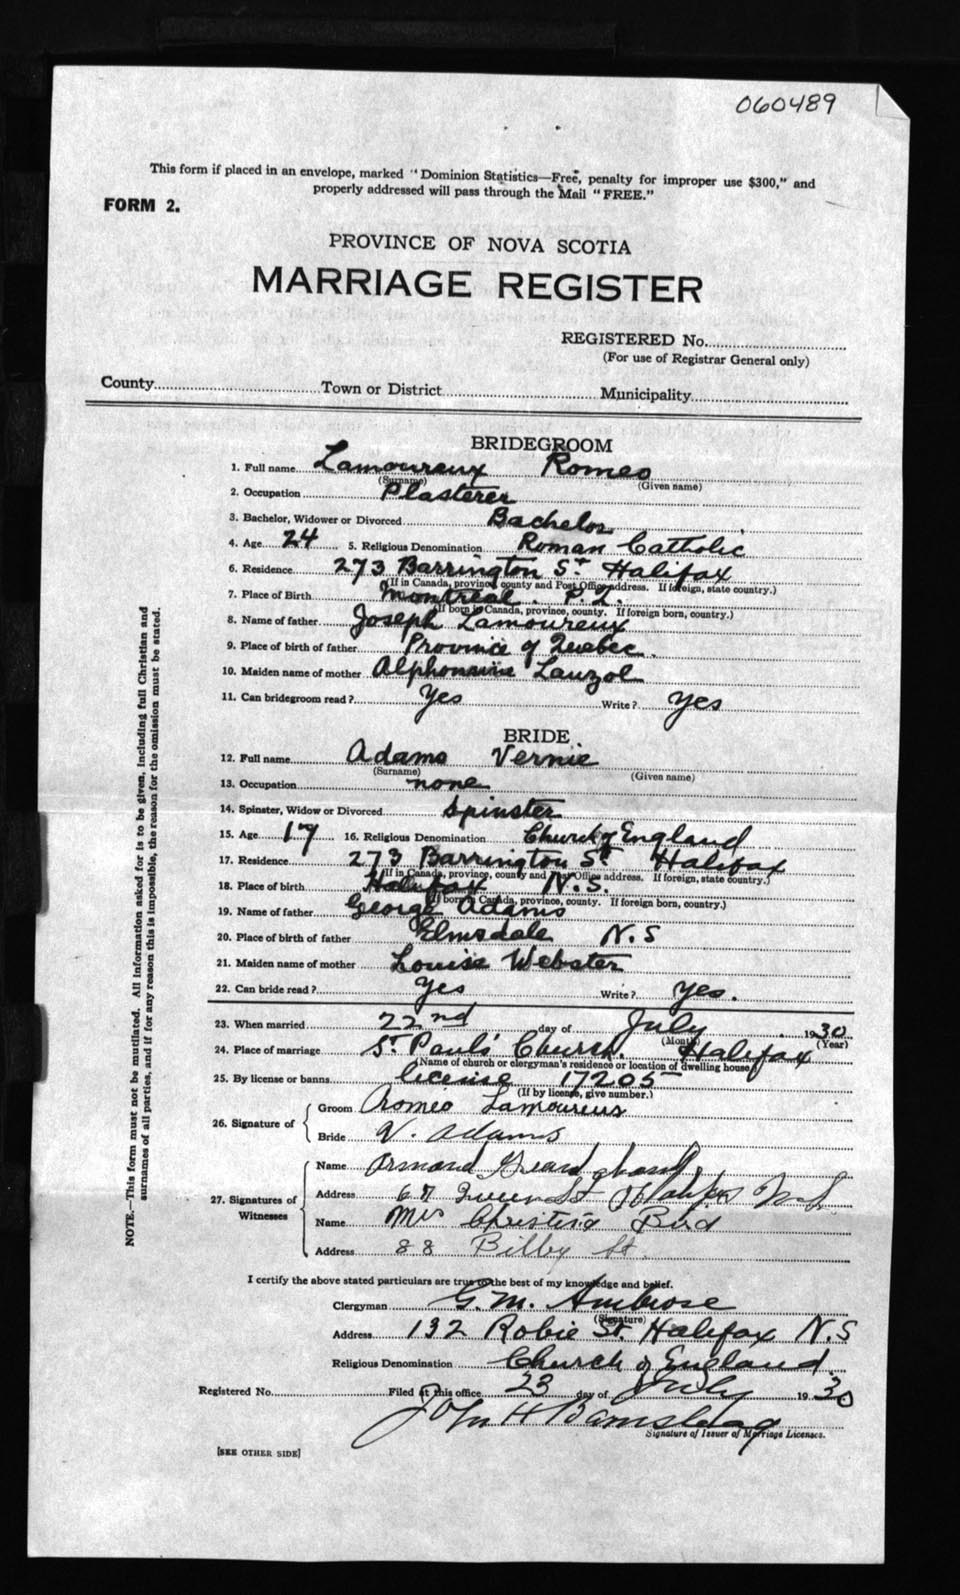 060489
This form if placed in an envelope, marked "Dominion Statistics—Free, penalty for improper use $300," and
properly addressed will pass through the Mail "FREE."
FORM 2.
PROVINCE OF NOVA SCOTIA
MARRIAGE REGISTER
REGISTERED No.
(For use of Registrar General only)
County Town or District Municipality
BRIDEGROOM
1. Full name Lamoureux Romeo
(Surname) (Given name)
2. Occupation Plasterer
3. Bachelor, Widower or Divorced Bachelor
4. Age 24 5. Religious Denomination Roman Catholic
6. Residence 273 Barrington St Halifax
(If in Canada, province, county and Post Office address. If foreign, state country.)
7. Place of Birth Montreal. P.Q.
(If born in Canada, province, county. If foreign born, country.)
8. Name of father Joseph Lamoureux
9. Place of birth of father Province of Quebec.
10. Maiden name of mother Lauzol
11. Can bridegroom read? Yes Write? Yes
BRIDE
12. Full name Adams Vernie
(Surname) (Given name)
13. Occupation none
14. Spinster, Widow or Divorced Spinster
15. Age 17 16. Religious Denomination Church of England
17. Residence 273 Barrington St Halifax
(If in Canada, province, county and Post Office address. If foreign, state country.)
18. Place of birth Halifax N.S.
(If born in Canada, province, county. If foreign born, country.)
19. Name of father George Adams
20. Place of birth of father Elmsdale N.S
21. Maiden name of mother Louise Webster
22. Can bride read? Yes Write? Yes.
23. When married 22nd day of July 1930
(Month) (Year)
24. Place of marriage St Pauls' Church. Halifax
(Name of church or clergyman's residence or location of dwelling house)
25. By license or banns license 17205
(If by license, give number.)
26. Signature of
Groom Romeo Lamoureux
Bride V. Adams
27. Signatures of Witnesses
Name Armand
Address 67 Queen St Halifax
Name Mrs Christina Bird
Address 88 Bilby St.
I certify the above stated particulars are true to the best of my knowledge and belief.
Clergyman G.M. Ambrose
(Signature)
Address 132 Robie St. Halifax N.S
Religious Denomination Church of England.
Registered No. Filed at this office 23 day of July 1930
John H Barnstead
Signature of Issuer of Marriage Licenses.
[SEE OTHER SIDE]
NOTE.—This form must not be mutilated. All information asked for is to be given, including full Christian and
surnames of all parties, and if for any reason this is impossible, the reason for the omission must be stated.